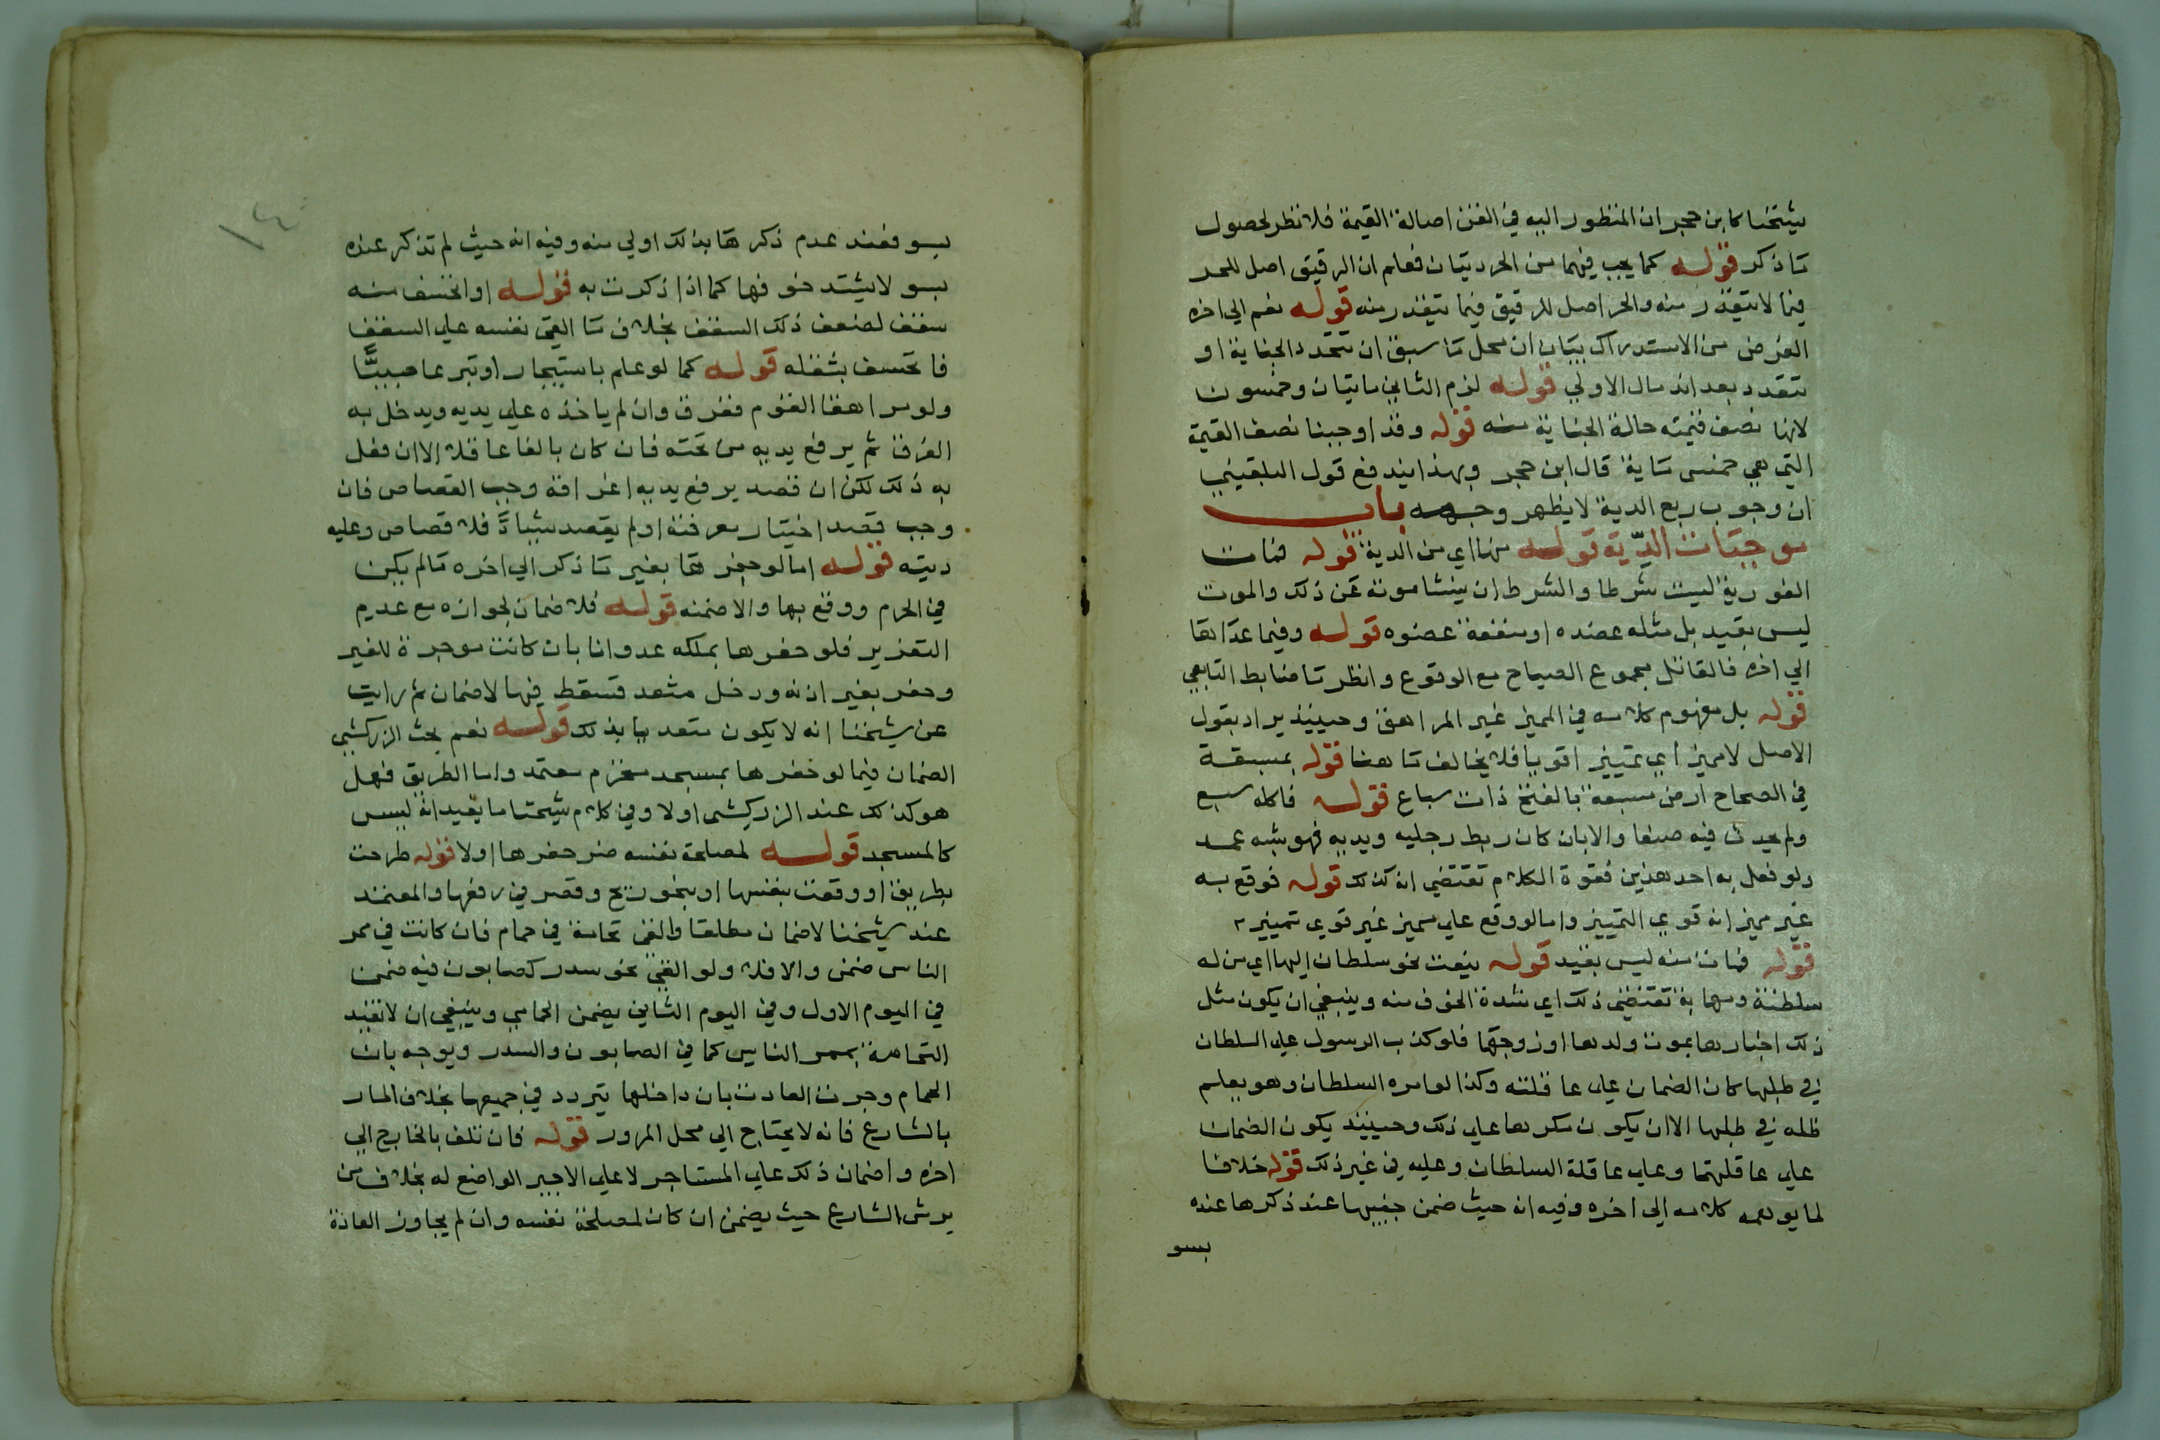 شيخنا كابن حجر ان المنظور اليه في القن اصالة القيمة فلا نظر لحصول
ما ذكر قوله كما يجب فيهما من الحر ديتان فعلم ان الرقيق اصل للحر
فيما لا يتقدر منه والحر اصل للرقيق فيما يتقدر منه قوله نعم الي اخره
الغرض من الاستدراك بيان ان محل ما سبق ان تتحد الجناية او
تتعدد بعد اندمال الاولي قوله لزم الثاني مايتان وخمسون
لانها نصف قيمته حالة الجناية منه قوله وقد اوجبنا نصف القيمة
التي هي خمس ماية قال ابن حجر وبهذا يندفع قول البلقيني
ان وجوب ربع الدية لا يظهر وجهه باب
موجبات الدية قوله منها اي من الدية قوله فمات
الفورية ليست شرطا والشرط ان ينشا موته عن ذلك والموت
ليس بقيد بل مثله عضده او منفعة عضوه قوله وفيما عداها
الي اخره فالقاتل مجموع الصياح مع الوقوع وانظر ما ضابط التابعي
قوله بل مفهوم كلامه في المميز غير المراهق وحينيذ يراد بقول
الاصل لا مميز اي تمييزا قويا فلا يخالف ما هنا قوله بمسبعة
في الصحاح ارض مسبعة بالفتح ذات سباع قوله فاكله سبع
ولم يحدث فيه ضعفا والا بان كان ربط رجليه ويديه فهو شبه عمد
ولو فعل به احد هذين فقوة الكلام تقتضي انه كذلك قوله فوقع به
غير مميز انه قوي التمييز واما لو وقع علي مميز غير قوي تمييز
قوله فمات منه ليس بقيد قوله بعث نحو سلطان اليها اي من له
سلطنة ومهابة تقتضي ذلك اي شدة الخوف منه وينبغي ان يكون مثل
ذلك اخبارها بموت ولدها او زوجها فلو كذب الرسول علي السلطان
في طلبها كان الضمان علي عاقلته وكذا لو امره السلطان وهو يعلم
ظلمه في طلبها الا ان يكون مكرها علي ذلك وحينيذ يكون الضمان
علي عاقلتهما وعلي عاقلة السلطان وعليه في غير ذلك قوله خلافا
لما يوهمه كلامه الي اخره وفيه انه حيث ضمن جنينها عند ذكرها عنده
بسو
١٤٠
بسو فعند عدم ذكرها بذلك اولي منه وفيه انه حيث لم تذكر عنده
بسو لا يشتد خوفها كما اذا ذكرت به قوله او انخسف منه
سقف لضعف ذلك السقف بخلاف ما القي نفسه علي السقف
فانخسف بثقله قوله كما لو علم باستيجار او تبرعا صبيًّا
ولو مراهقا العوم فغرق وان لم ياخذه علي يديه ويدخل به
الغرق ثم يرفع يديه من تحته فان كان بالغا عاقلا الا ان فعل
به ذلك لكن ان قصد يرفع يديه اغراقه وجب القصاص فان
وجب قصد اختيار معرفته او لم يقصد شياً فلا قصاص وعليه
ديته قوله اما لو حفرها بغير ما ذكر الي اخره ما لم يكن
في الحرم ووقع بها والا ضمنه قوله فلا ضمان لجوازه مع عدم
التعزير فلو حفرها بملكه عدوانا بان كانت موجرة للغير
وحفر بغير اذنه ودخل متعد فسقط فيها لا ضمان ثم رايت
عن شيخنا انه لا يكون متعديا بذلك قوله نعم بحث الزركشي
الضمان فيما لو حفرها بمسجد معتمد واما الطريق فهل
هو كذلك عند الزركشي اولا وفي كلام شيخنا ما يفيد انه ليس
كالمسجد قوله لمصلحة نفسه ضر حفرها اولا قوله طرحت
بطريق او وقعت بنفسها او بنحو ريح وقصر في رفعها والمعتمد
عند شيخنا لا ضمان مطلقا والقي نحامة في حمام فان كانت في ممر
الناس ضمن والا فلا ولو القي نحو سدر كصابون فيه ضمن
في اليوم الاول وفي اليوم الثاني يضمن الحمامي وينبغي ان لا تقيد
النخامة بممر الناس كما في الصابون والسدر ويوجه بان
الحمام وجرت العادت بان داخلها يتردد في جميعها بخلاف المار
بالشارع فانه لا يحتاج الي محل المرور قوله فان تلف بالخارج الي
اخره واضمان ذلك علي المستاجر لا علي الاجير الواضع له بخلاف من
يرش الشارع حيث يضمن ان كان لمصلحة نفسه وان لم يجاوز العادة